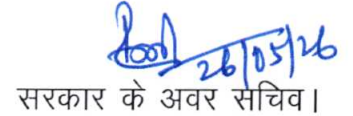 26/05/26
सरकार के अवर सचिव।